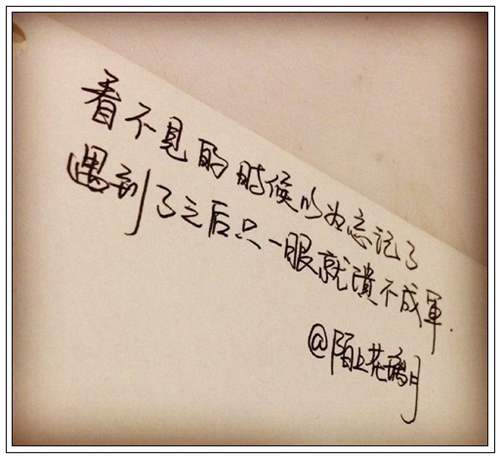 看不見的时候以为忘记了
遇到了之后只一眼就潰不成軍.
@陌上花璃月